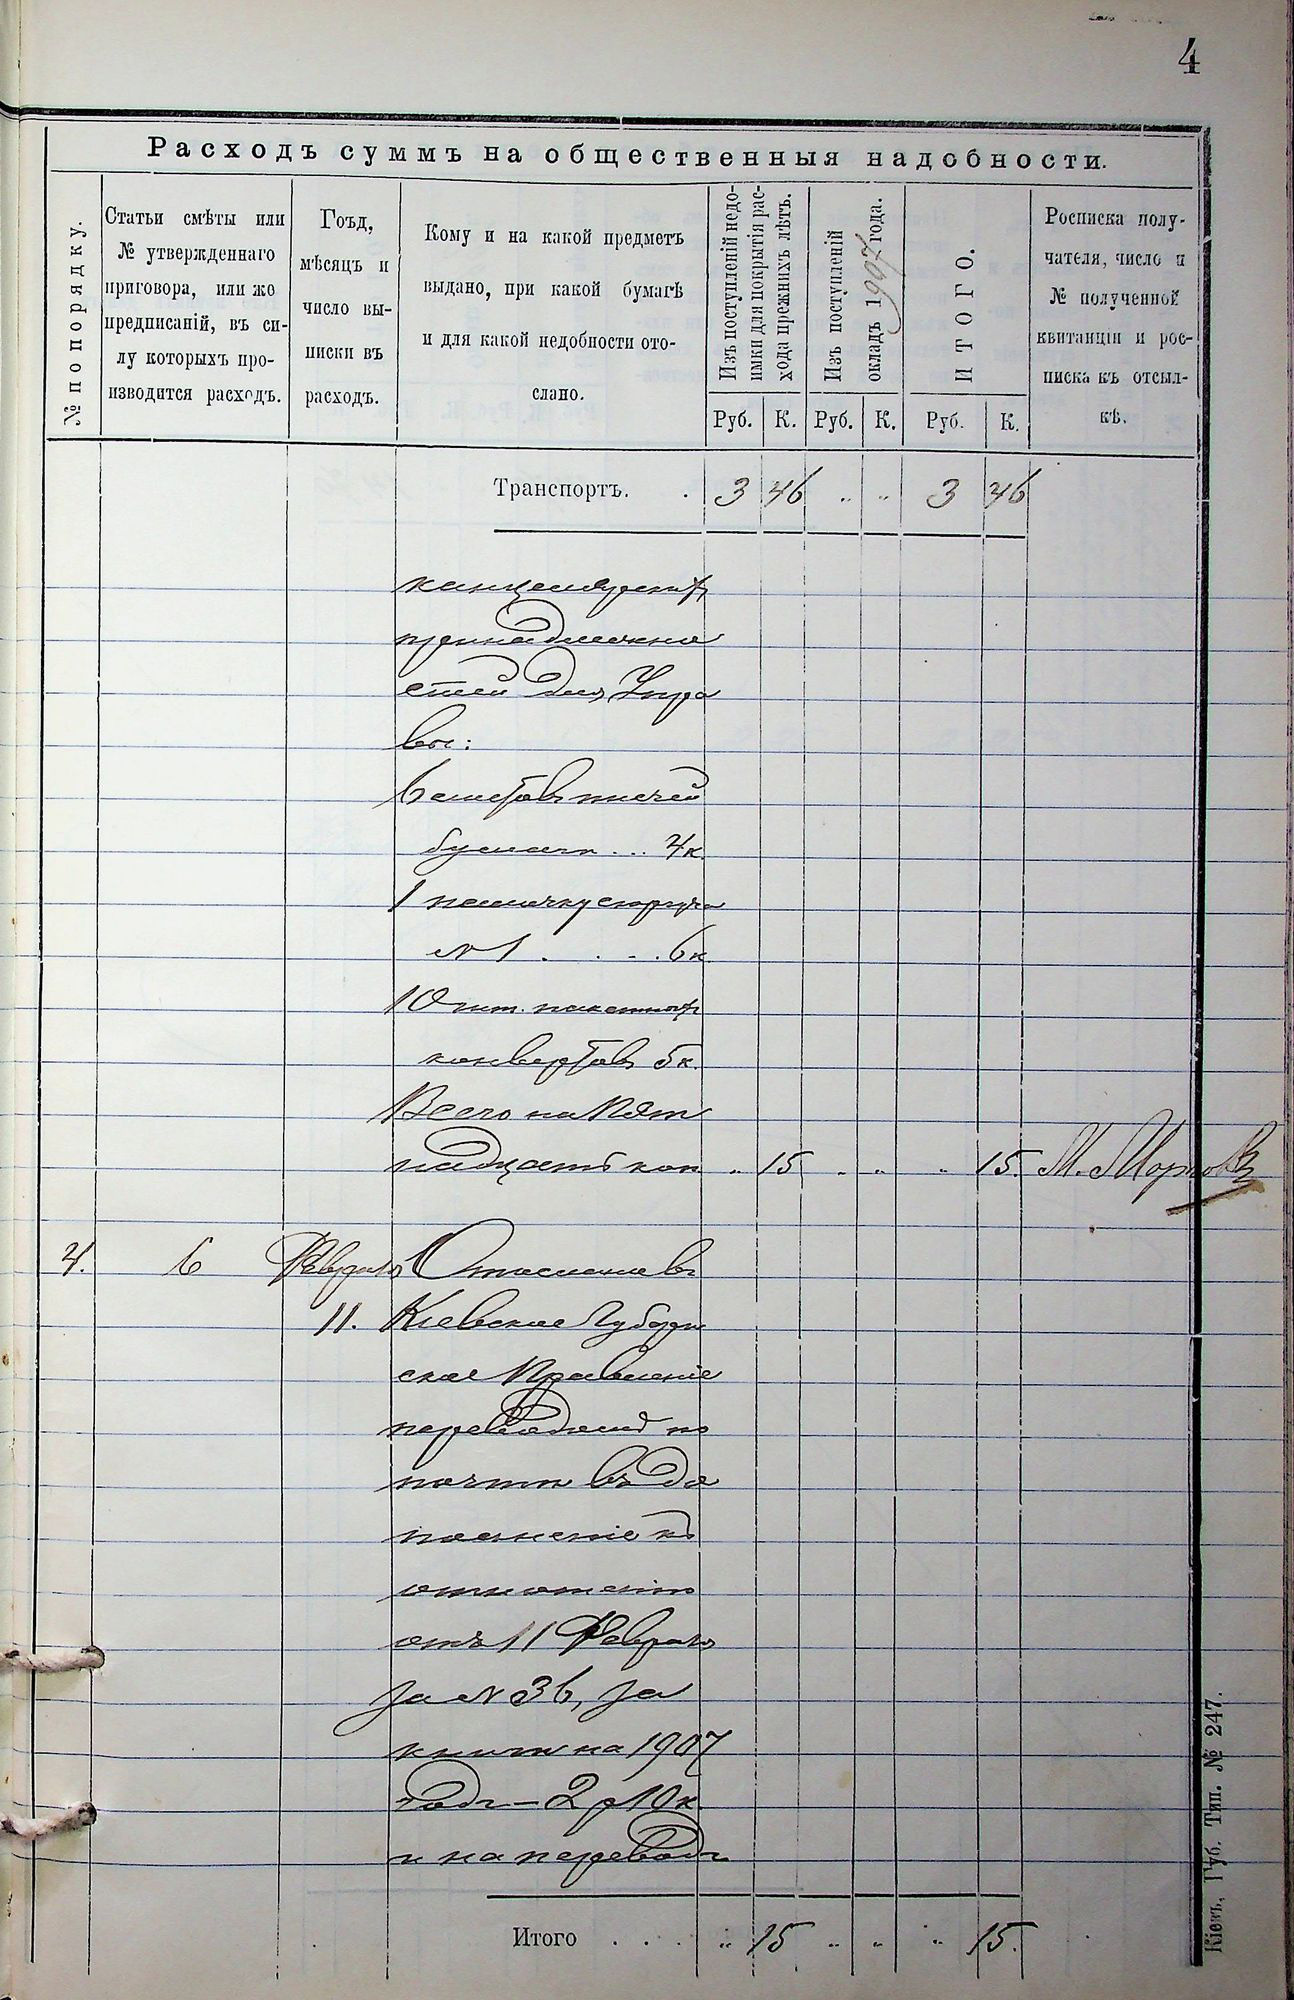 4
Расходъ суммъ на общественныя надобности.
№ по порядку.
Статьи смѣты или
№ утвержденнаго
приговора, или же
предписаній, въ си-
лу которыхъ про-
изводится расходъ.
Гоъд,
мѣсяцъ и
число вы-
писки въ
расходъ.
Кому и на какой предметъ
выдано, при какой бумагѣ
и для какой недобности ото-
слано.
Изъ поступленій недо-
имки для покрытія рас-
хода прежнихъ лѣтъ.
Изъ поступленій
окладъ 1907 года.
ИТОГО.
Росписка полу-
чателя, число и
№ полученной
квитанціи и рос-
писка къ отсыл-
кѣ.
Руб. К. Руб. К. Руб. К.
Транспортъ. . 3 46 " " 3 46
канцелярскихъ
принадлежно
стей для Упра
вы:
6 листовъ писчей
бумаги ... 4 к.
1 палочку сюргуча
№ 1 . . . . 6 к
10 шт. пакетныхъ
конвертовъ 5 к.
Всего на Пят
надцать коп " 15 " " " 15.
4. 6 Февраля Отослано въ
11. Кіевское Губерн
ское Правленіе
переводомъ по
почтѣ въ до
полненіе къ
отношенію
отъ 11 Февраля
за № 36, за
книги на 1907
годъ – 2 р 10 к.
и на переводъ
Итого . . . . " 15 " " " 15.
Кіевъ, Губ. Тип. № 247.